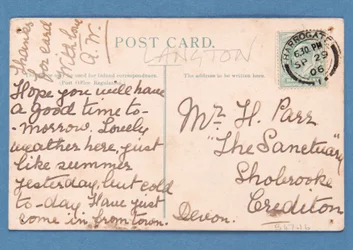 Thanks
for card
With Love
A.W.
POST CARD.
LANGTON
for inland correspondence.
(Post Regulation)
The address to be written here.
HARROGATE
6.30 PM
SP 29
06
Hope you will have
a good time to-
morrow. Lovely
weather here, just
like summer
yesterday, but cold
to-day. Have just
come in from town.
Mr. H. Parr
"The Sanctuary"
Shobrooke
Crediton
Devon.